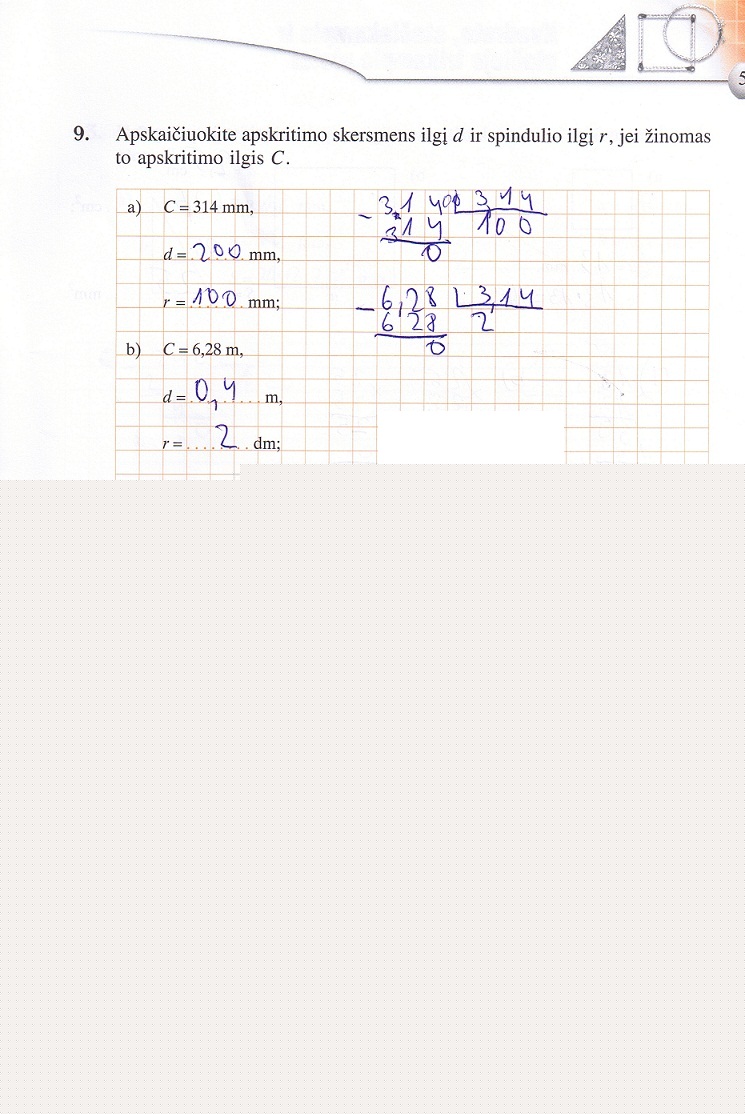 5
9. Apskaičiuokite apskritimo skersmens ilgį d ir spindulio ilgį r, jei žinomas
to apskritimo ilgis C.
a) C = 314 mm,
d = 200 mm,
r = 100 mm;
b) C = 6,28 m,
d = 0,4 m,
r = 2 dm;
3,14
314
100
0
6,28 3,14
6 28 2
0